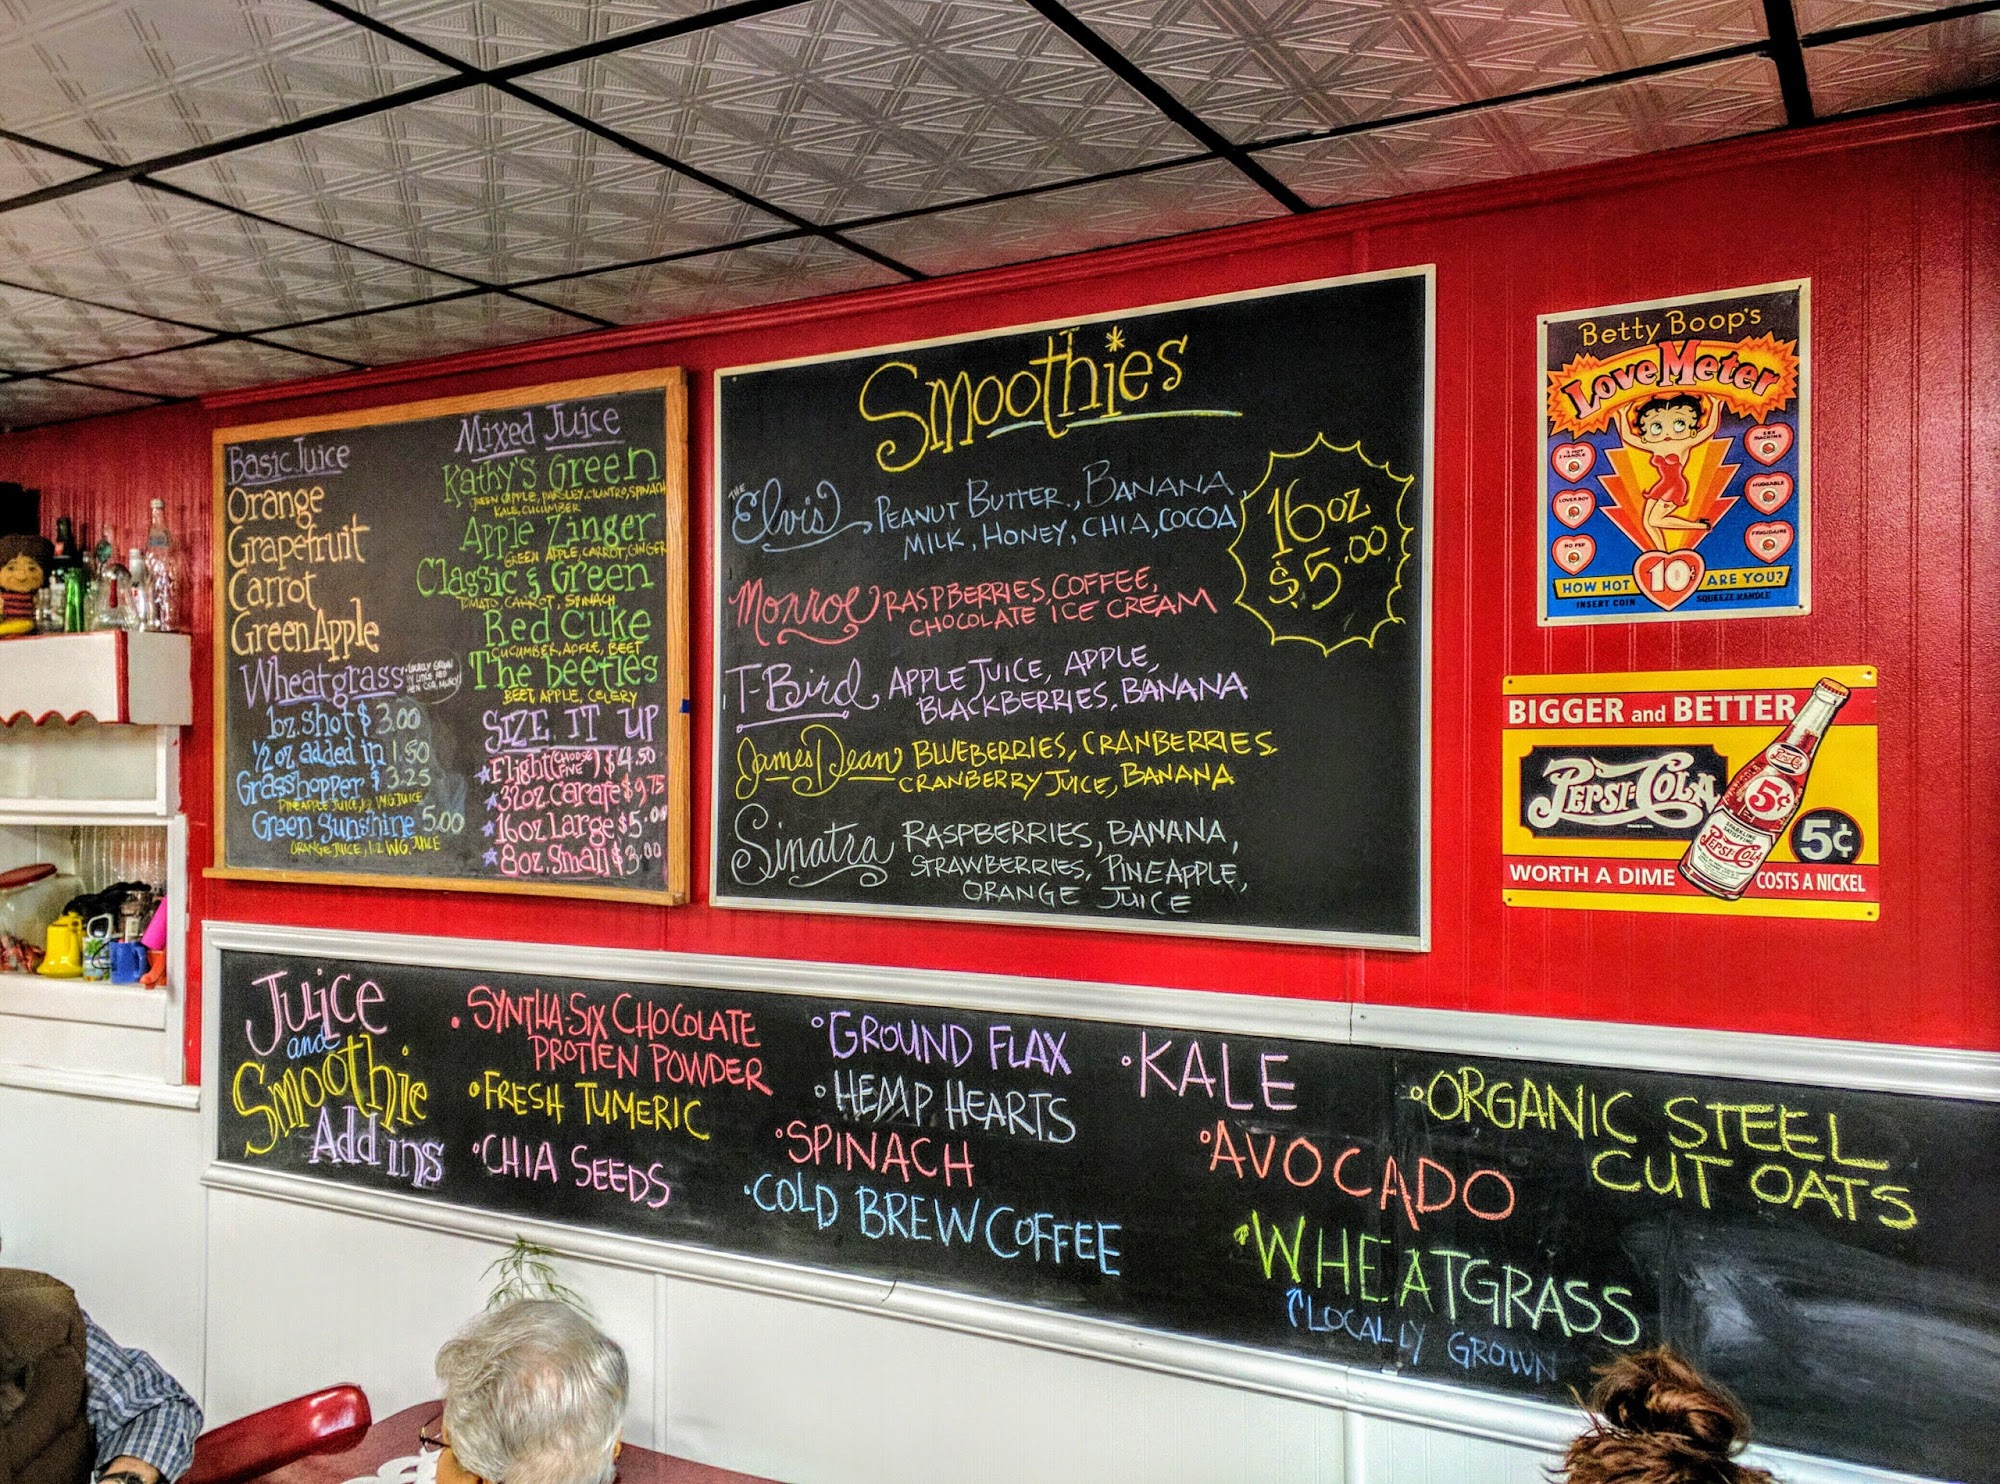 Basic Juice
Orange
Grapefruit
Carrot
Green Apple
Wheatgrass
LOCALLY GROWN
1oz shot $3.00
1/2 oz added in 1.50
Grasshopper $3.25
PINEAPPLE JUICE, 1oz WG JUICE
Green Sunshine 5.00
ORANGE JUICE, 1.2 WG JUICE
Mixed Juice
Kathy's Green
GREEN APPLE, PARSLEY, CILANTRO, SPINACH
KALE, CUCUMBER
Apple Zinger
GREEN APPLE, CARROT, GINGER
Classic & Green
TOMATO, CARROT, SPINACH
Red Cuke
CUCUMBER, APPLE, BEET
The beetles
BEET, APPLE, CELERY
SIZE IT UP
Flight (CHOOSE FIVE) $4.50
32oz Carafe $9.75
16oz Large $5.00
8oz. Small $3.00
Smoothies
THE Elvis PEANUT BUTTER, BANANA,
MILK, HONEY, CHIA, COCOA
16oz
$5.00
Monroe RASPBERRIES, COFFEE,
CHOCOLATE ICE CREAM
T-Bird APPLE JUICE, APPLE,
BLACKBERRIES, BANANA
James Dean BLUEBERRIES, CRANBERRIES
CRANBERRY JUICE, BANANA
Sinatra RASPBERRIES, BANANA,
STRAWBERRIES, PINEAPPLE,
ORANGE JUICE
Betty Boop's
Love Meter
HOT 2 HANDLE
SEX MACHINE
LOVER BOY
HUGGABLE
NO PEP
FRIGIDAIRE
HOW HOT 10¢ ARE YOU?
INSERT COIN SQUEEZE HANDLE
BIGGER and BETTER
PEPSI-COLA
5¢
SPARKLING
SATISFYING
PEPSI-COLA
5¢
WORTH A DIME COSTS A NICKEL
Juice
and
Smoothie
Add ins
• SYNTHA-SIX CHOCOLATE
PROTIEN POWDER
• FRESH TUMERIC
• CHIA SEEDS
• GROUND FLAX
• HEMP HEARTS
• SPINACH
• COLD BREW COFFEE
• KALE
• AVOCADO
• WHEATGRASS
↑ LOCALLY GROWN
• ORGANIC STEEL
CUT OATS